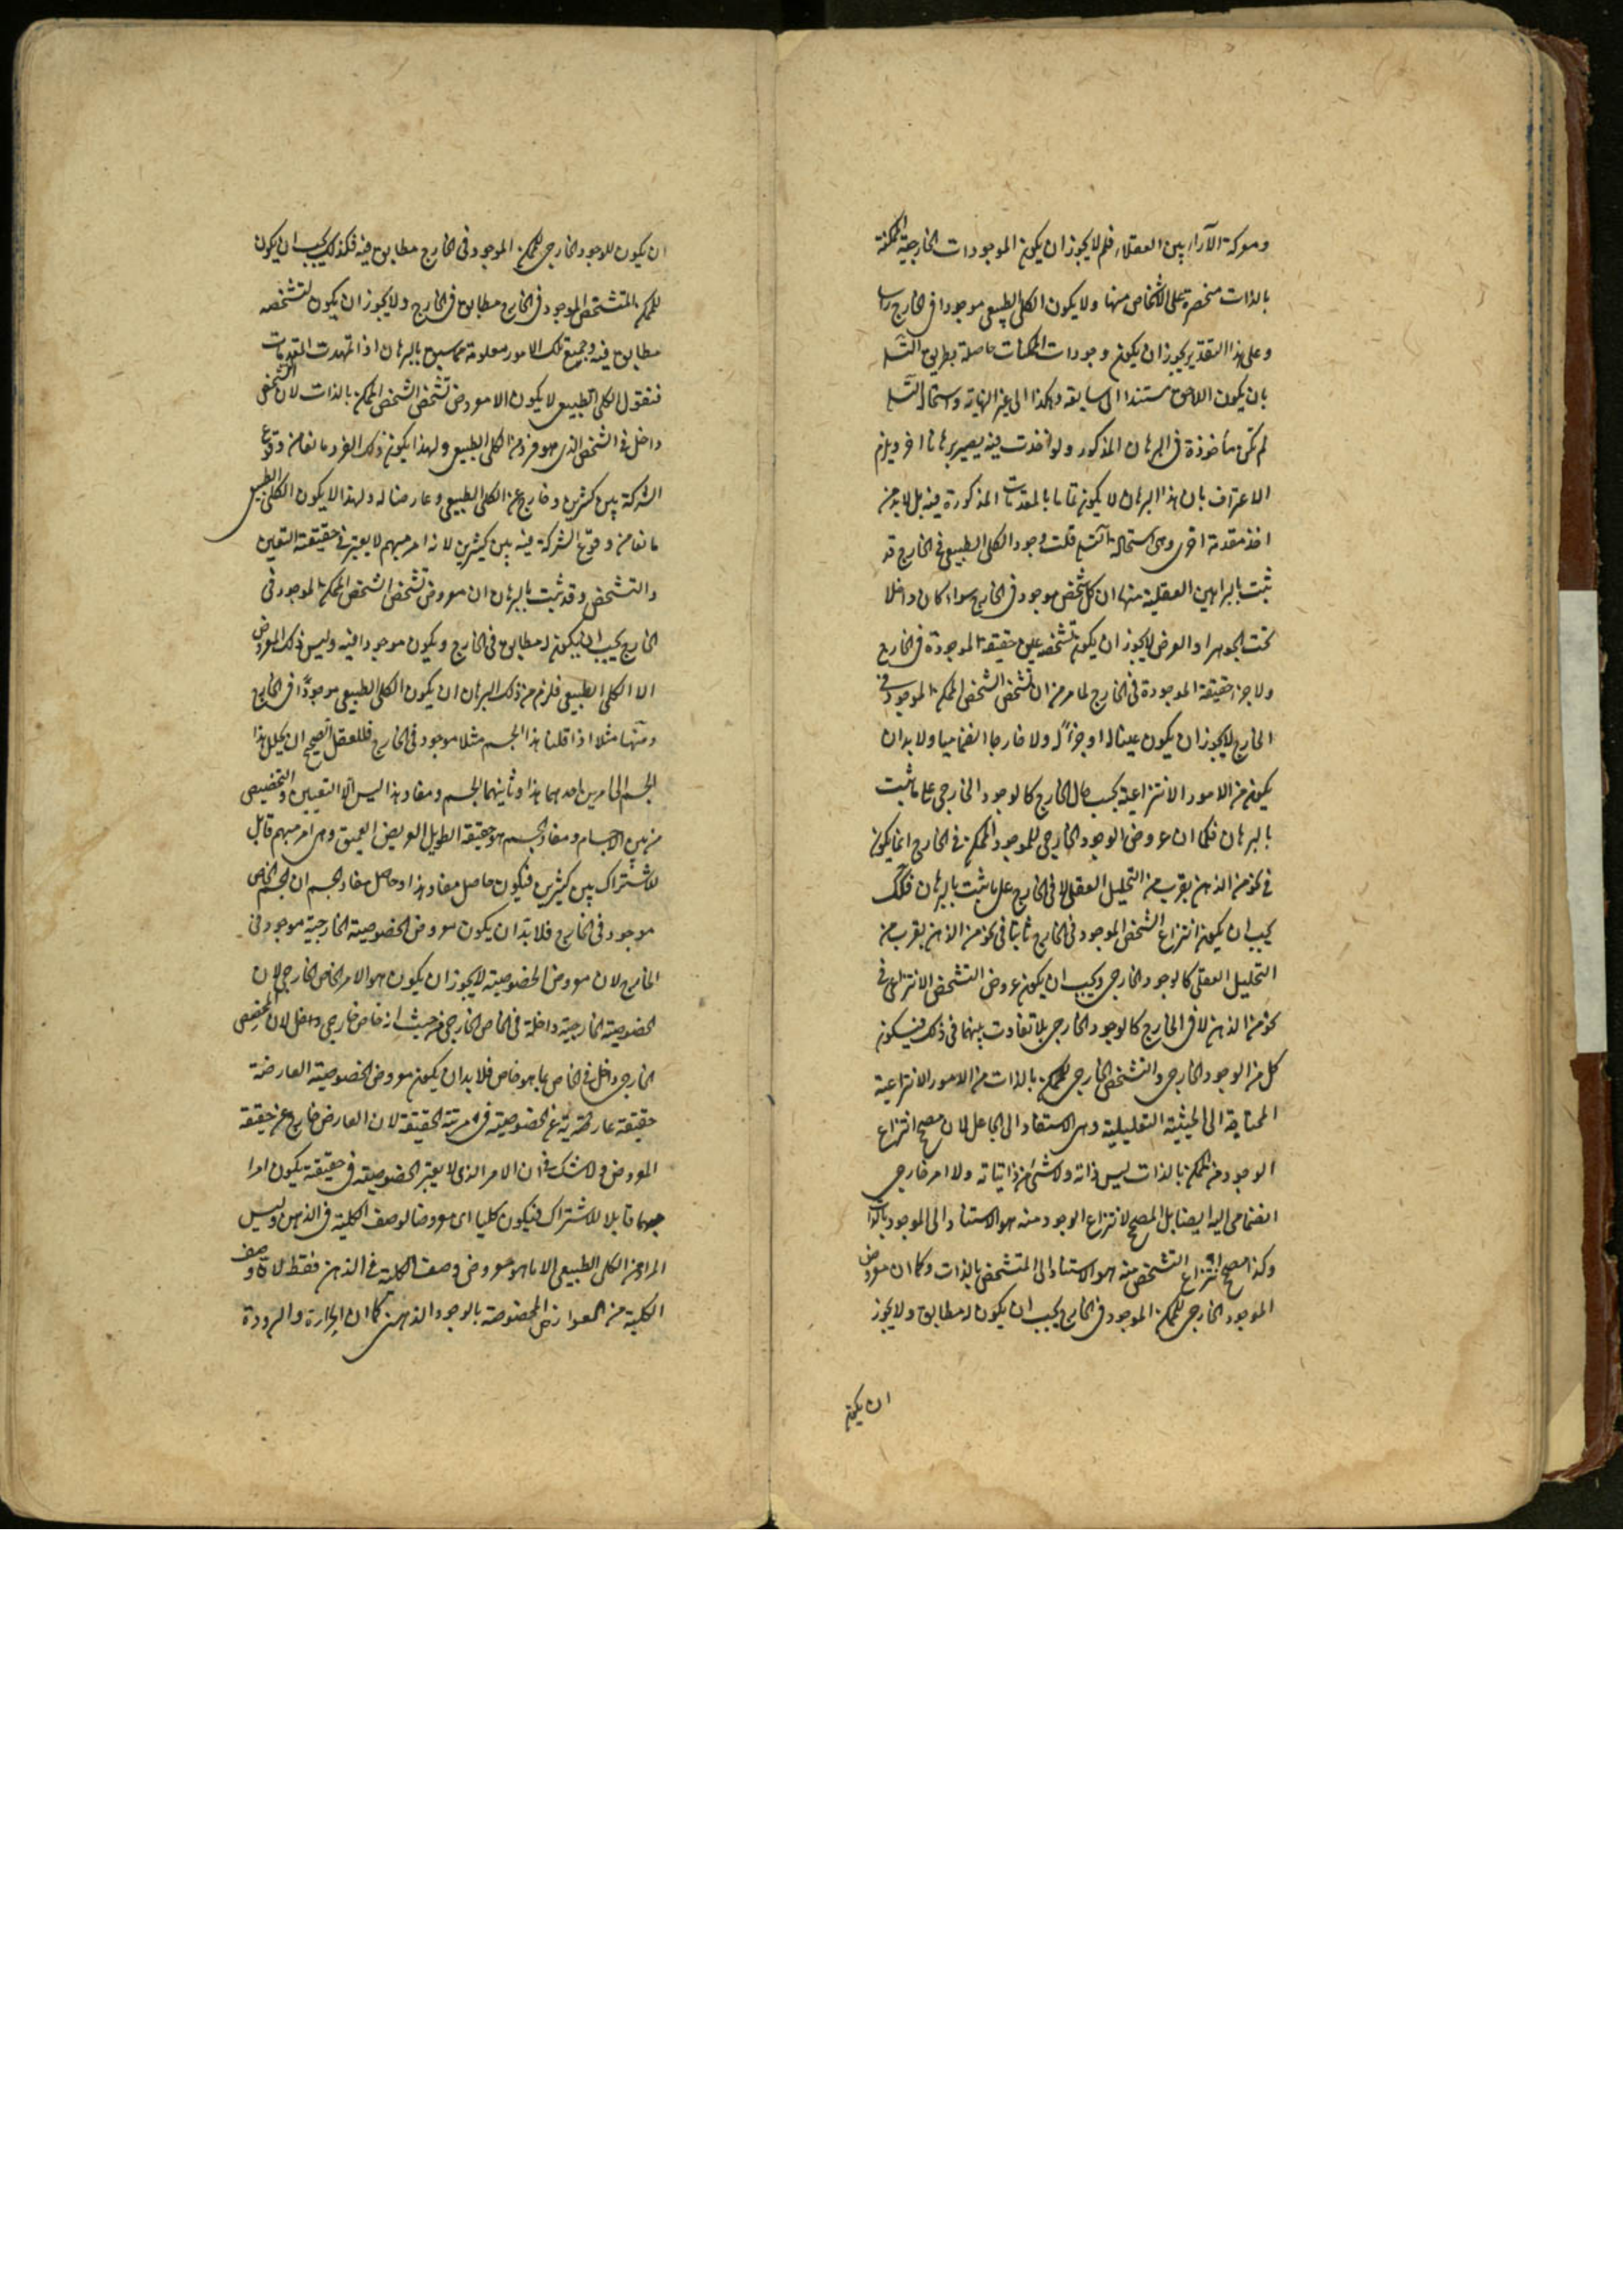 ومعركة الآراء بين العقلاء فلم لا يجوز ان يكون الموجودات الخارجية الممكنة
بالذات منحصرة على الاشخاص منها ولا يكون الكلي الطبيعي موجودا في الخارج راسا
وعلى هذا التقدير يجوز ان يكون وجودات الممكنات حاصلة بطريق التسلسل
بان يكون اللاحق مستندا الى سابقه وهكذا الى غير النهاية واستحالة التسلسل
لم تكن مأخوذة في البرهان المذكور ولو اخذت فيه يصير برهانا اخر ويلزم
الاعتراف بان هذا البرهان لا يكون تاما بالمقدمات المذكورة فيه بل لا بد من
اخذ مقدمة اخرى وهى استحالة التسلسل قلت وجود الكلي الطبيعي في الخارج قد
ثبت بالبراهين العقلية منها ان كل شخص موجود في الخارج سواء كان داخلا
تحت الجوهر او العرض لا يجوز ان يكون تشخصه عين حقيقته الموجودة في الخارج
ولا جزء حقيقته الموجودة في الخارج لما مر من ان تشخص الشخص الممكن الموجود في
الخارج لا يجوز ان يكون عينا له او جزءً له ولا خارجا انضماميا ولا بد ان
يكون من الامور الانتزاعية بحسب حال الخارج كالوجود الخارجي على ما ثبت
بالبرهان فكما ان عروض الوجود الخارجي للموجود الممكن في الخارج انما يكون
في نحو من الذهن بقرب من التحليل العقلي لا في الخارج على ما ثبت بالبرهان فكذلك
يجب ان يكون انتزاع الشخص الموجود في الخارج ثابتا في نحو من الذهن بقرب من
التحليل العقلي كالوجود الخارجي ويجب ان يكون عروض التشخص الانتزاعى في
نحو من الذهن لا في الخارج كالوجود الخارجي بلا تفاوت بينهما في ذلك فيكون
كل من الوجود الخارجي والتشخص الخارجي للممكن بالذات من الامور الانتزاعية
المحتاجة الى الحيثية التعليلية وهى الاستناد الى الجاعل لان مصحح انتزاع
الوجود من الممكن بالذات ليس ذاته ولا شئ من ذاتياته ولا امر خارجي
انضمامى اليه ايضا بل المصحح لانتزاع الوجود منه هو الاستناد الى الموجود بالذات
وكذا مصحح انتزاع التشخص منه هو الاستناد الى المتشخص بالذات وكما ان معروض
الموجود الخارجي للممكن الموجود في الخارج يجب ان يكون له مطابق ولا يجوز
ان يكون
ان يكون للوجود الخارجي للممكن الموجود في الخارج مطابق فيه فكذلك يجب ان يكون
للممكن المتشخص الموجود في الخارج مطابق في الخارج ولا يجوز ان يكون لتشخصه
مطابق فيه وجميع تلك الامور معلومة مما سبق بالبرهان اذا تمهدت المقدمات
فنقول الكلي الطبيعي لا يكون الا معروض تشخص الشخص الممكن بالذات لان التشخص
داخل في الشخص الذى هو فرد من الكلي الطبيعي ولهذا يكون ذلك الفرد مانعا من وقوع
الشركة بين كثيرين وخارج عن الكلي الطبيعي وعارضا له ولهذا لا يكون الكلي الطبيعي
مانعا من وقوع الشركة فيه بين كثيرين لانه امر مبهم لا يعتبر في حقيقته التعين
والتشخص وقد ثبت بالبرهان ان معروض تشخص الشخص الممكن الموجود في
الخارج يجب ان يكون له مطابق في الخارج ويكون موجودا فيه وليس ذلك المعروض
الا الكلي الطبيعي فلزم من ذلك البرهان ان يكون الكلي الطبيعي موجودًا في الخارج
ومنها مثلا اذا قلنا هذا الجسم مثلا موجود في الخارج فللعقل الصحيح ان يحلل هذا
الجسم الى امرين احدهما هذا وثانيهما الجسم ومفاد هذا ليس الا التعيين والتخصيص
من بين الاجسام ومفاد الجسم هو حقيقة الطويل العريض العميق وهى امر مبهم قابل
للاشتراك بين كثيرين فيكون حاصل مفاد هذا وحاصل مفاد الجسم ان الجسم الخاص
موجود في الخارج فلا بد ان يكون معروض الخصوصية الخارجية موجود في
الخارج لان معروض الخصوصية لا يجوز ان يكون هو الامر الخاص الخارجي لان
الخصوصية الخارجية داخلة في الخاص الخارجي من حيث انه خاص خارجي داخل لان المخصص
الخارجي داخل في الخاص بما هو خاص فلا بد ان يكون معروض الخصوصية العارضة
حقيقة عارية عن الخصوصية في مرتبة الحقيقة لان العارض خارج عن حقيقة
المعروض ولا شك في ان الامر الذى لا يعتبر الخصوصية في حقيقته يكون امرا
مبهما قابلا للاشتراك فيكون كليا اى معروضا لوصف الكلية في الذهن وليس
المراد من الكلي الطبيعي الا ما هو معروض وصف الكلية في الذهن فقط لان وصف
الكلية من العوارض المخصوصة بالوجود الذهنى كما ان الحرارة والبرودة